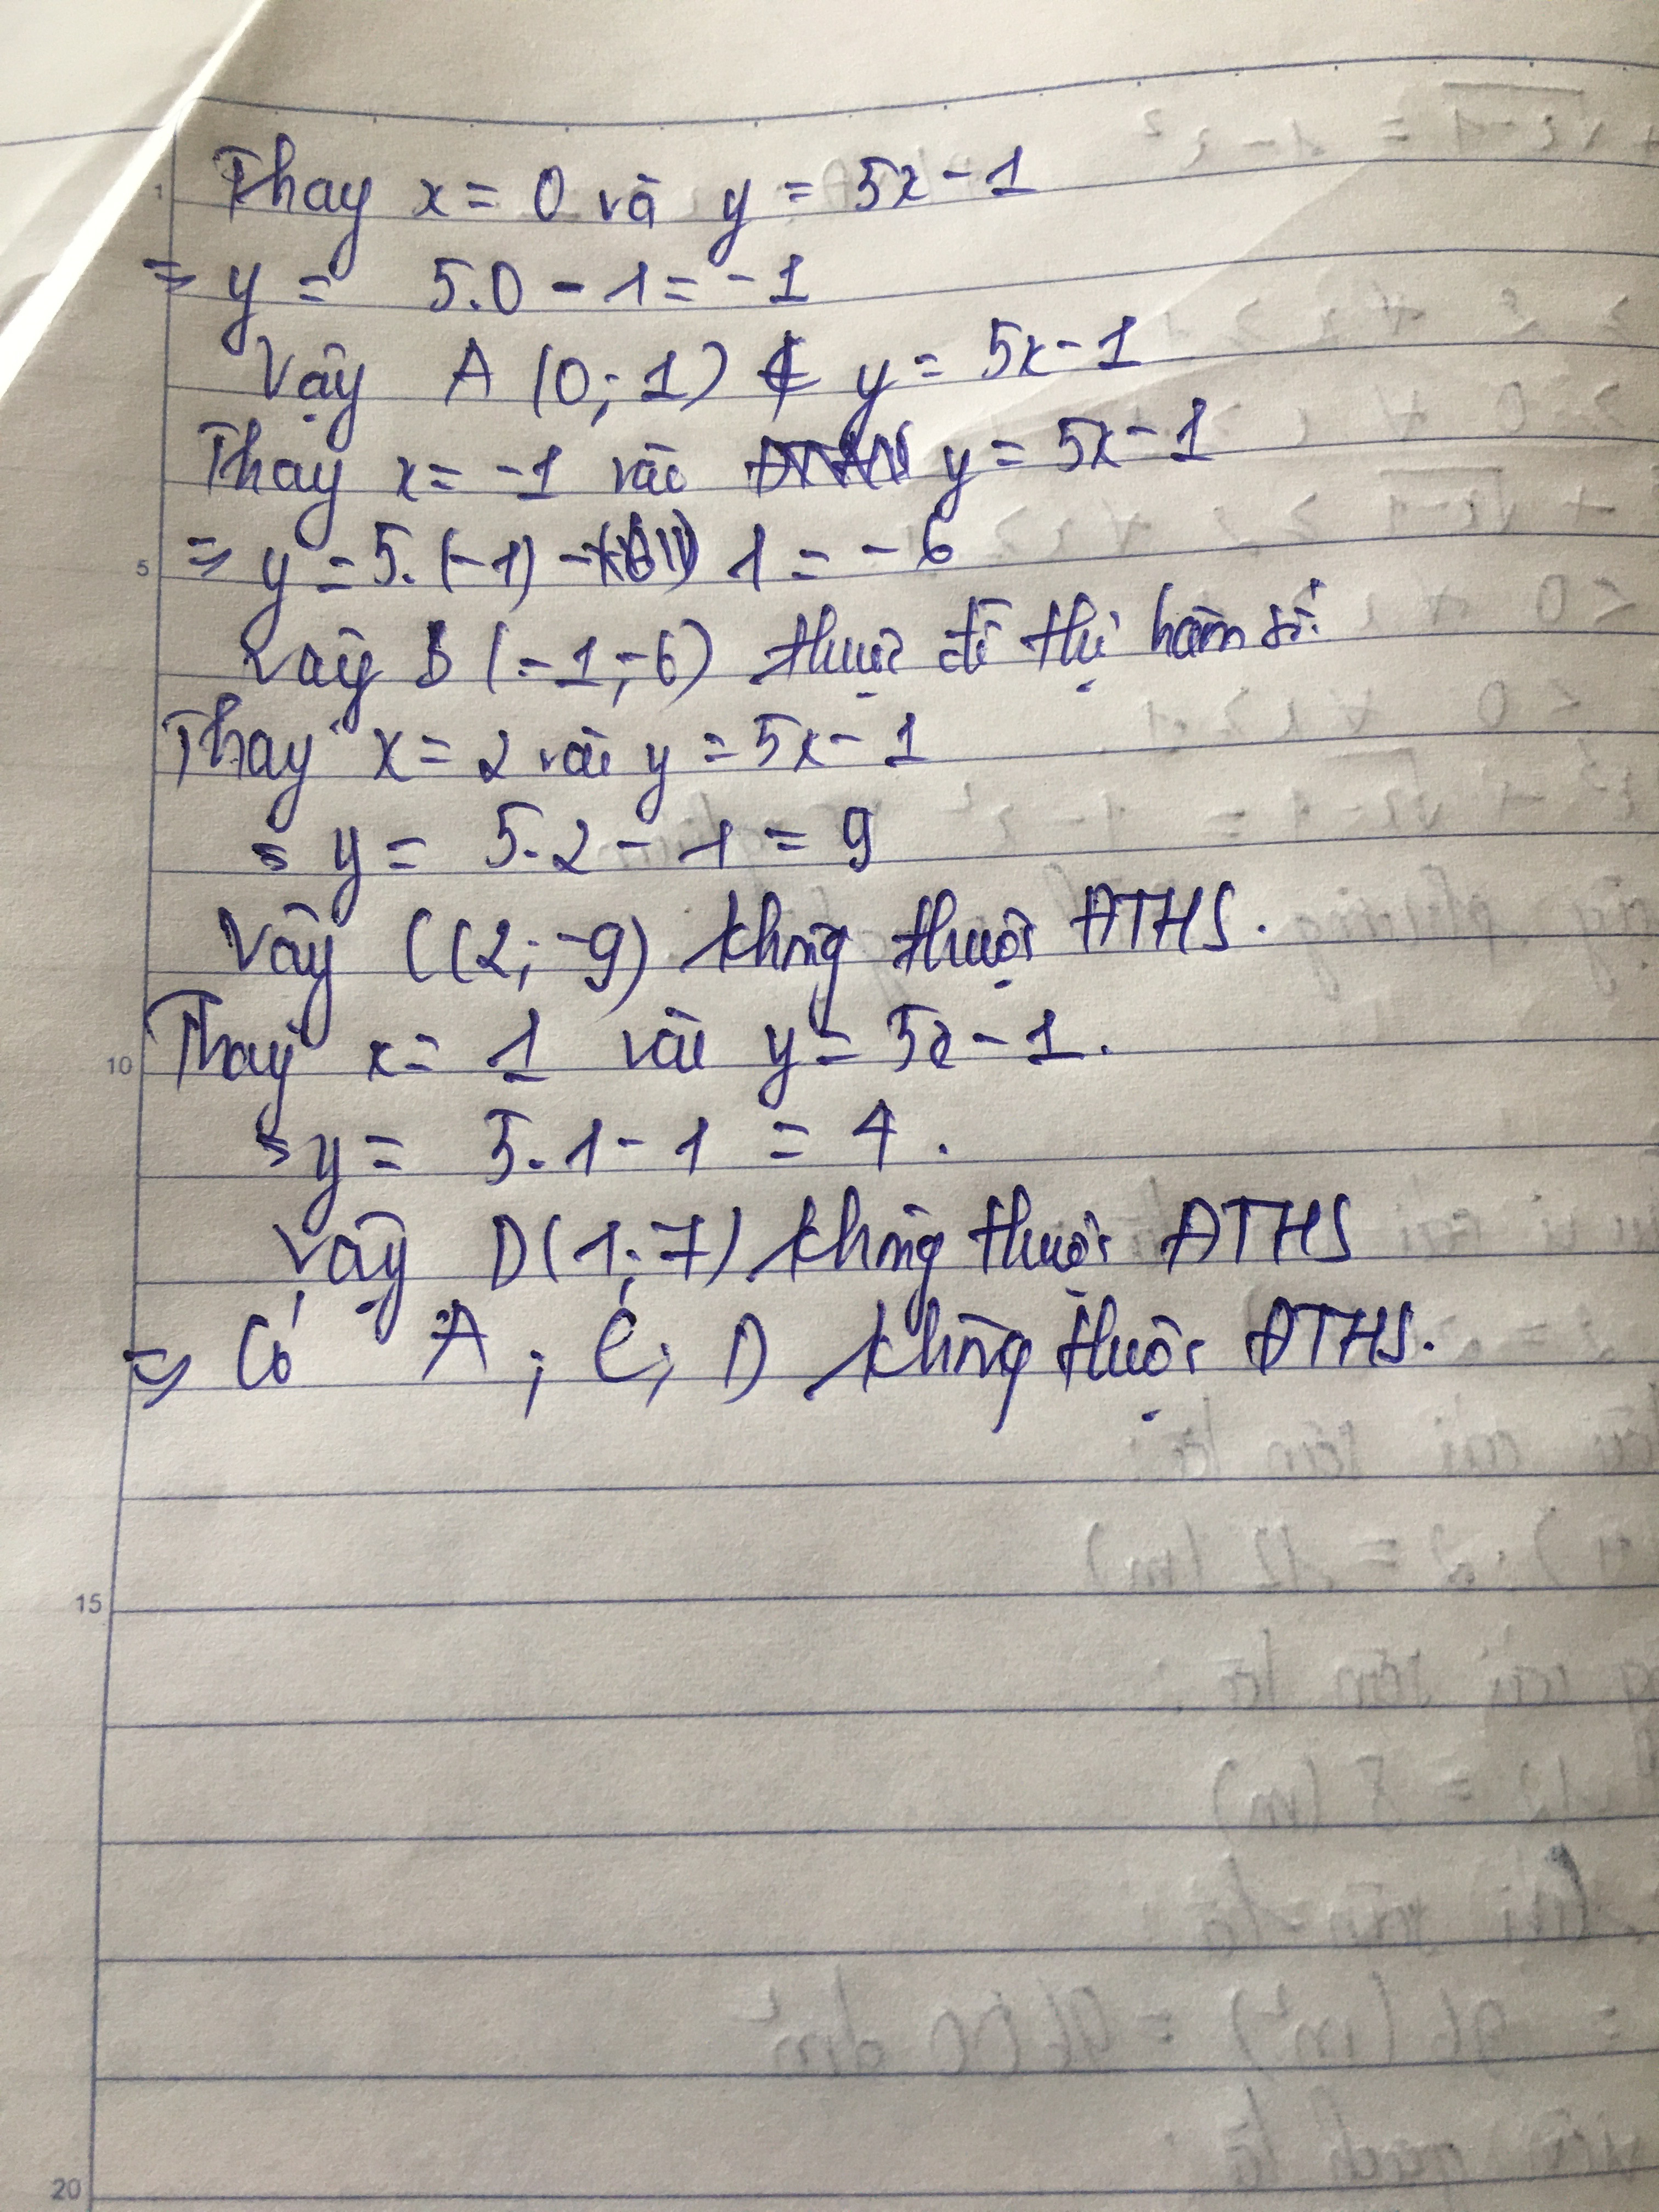 Thay x = 0 và y = 5x - 1
⇒ y = 5.0 - 1 = -1
Vậy A (0; 1) ∉ y = 5x - 1
Thay x = -1 vào y = 5x - 1
⇒ y = 5.(-1) - 1 = -6
Vậy B (-1; -6) thuộc đồ thị hàm số.
Thay x = 2 vào y = 5x - 1
⇒ y = 5.2 - 1 = 9
Vậy C(2; -9) không thuộc ĐTHS.
Thay x = 1 vào y = 5x - 1.
⇒ y = 5.1 - 1 = 4.
Vậy D(1; 7) không thuộc ĐTHS
⇒ Có A; C; D không thuộc ĐTHS.
1
5
10
15
20